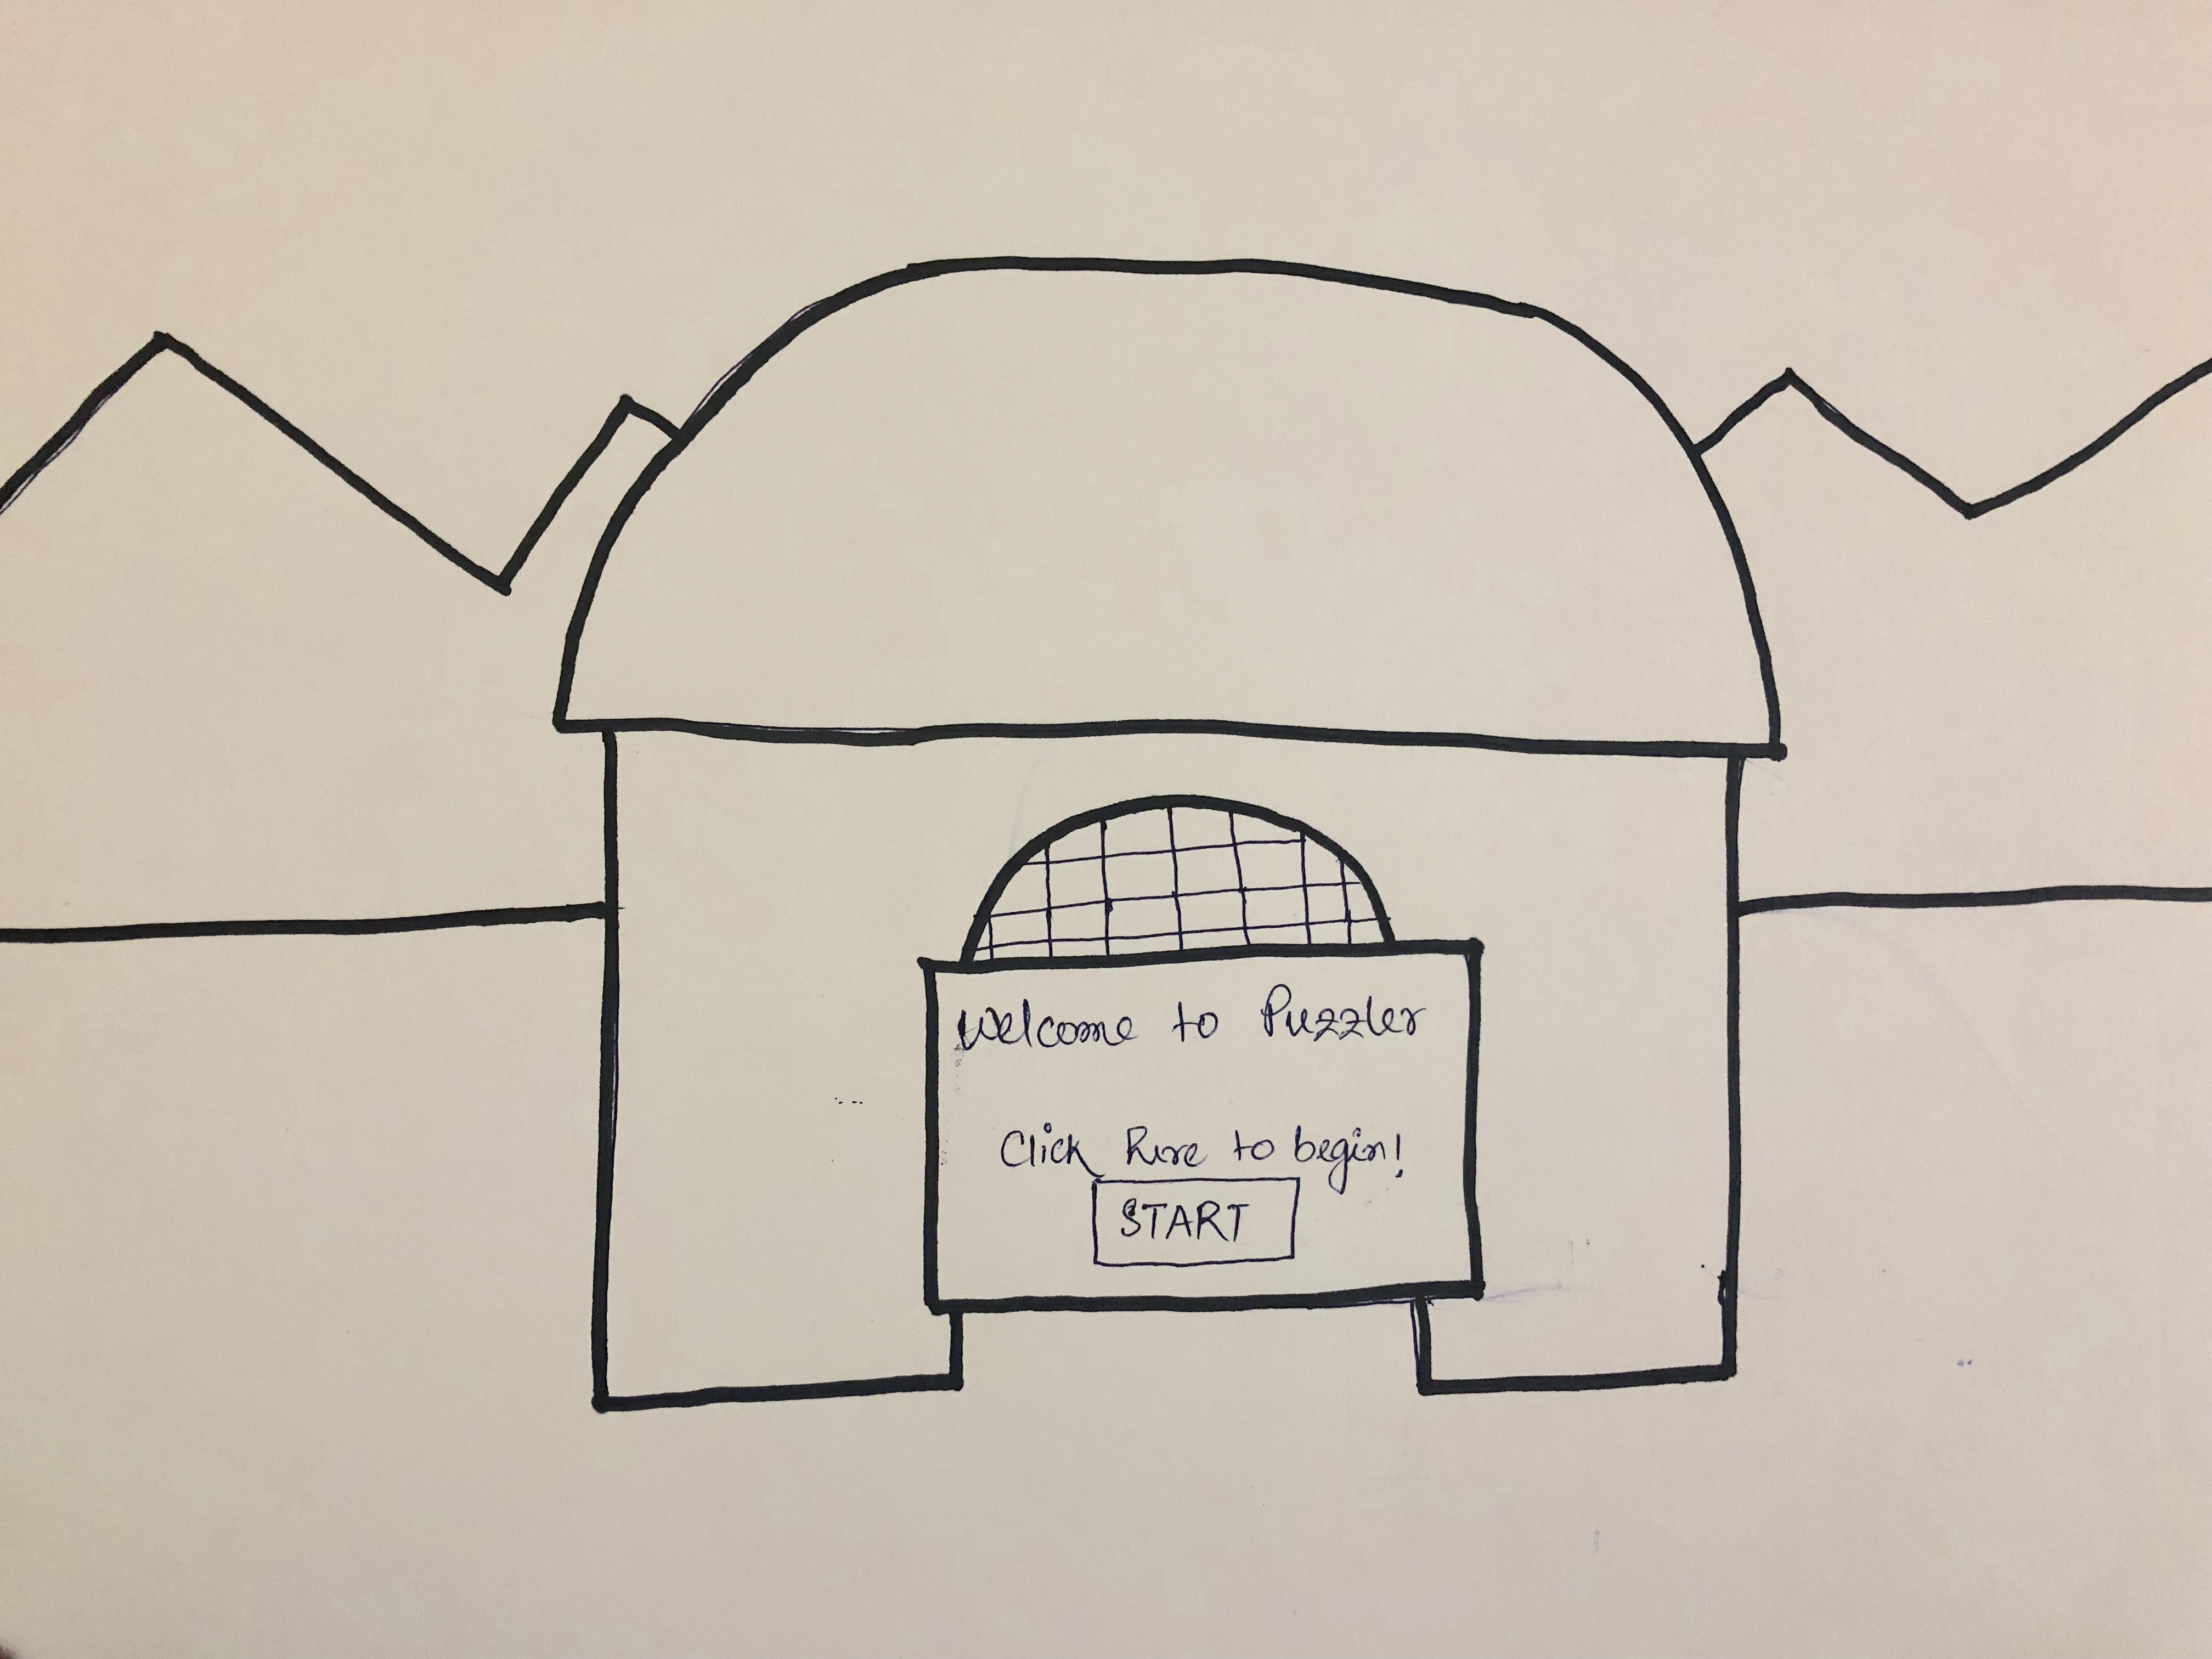 Welcome to Puzzler
Click here to begin!
START